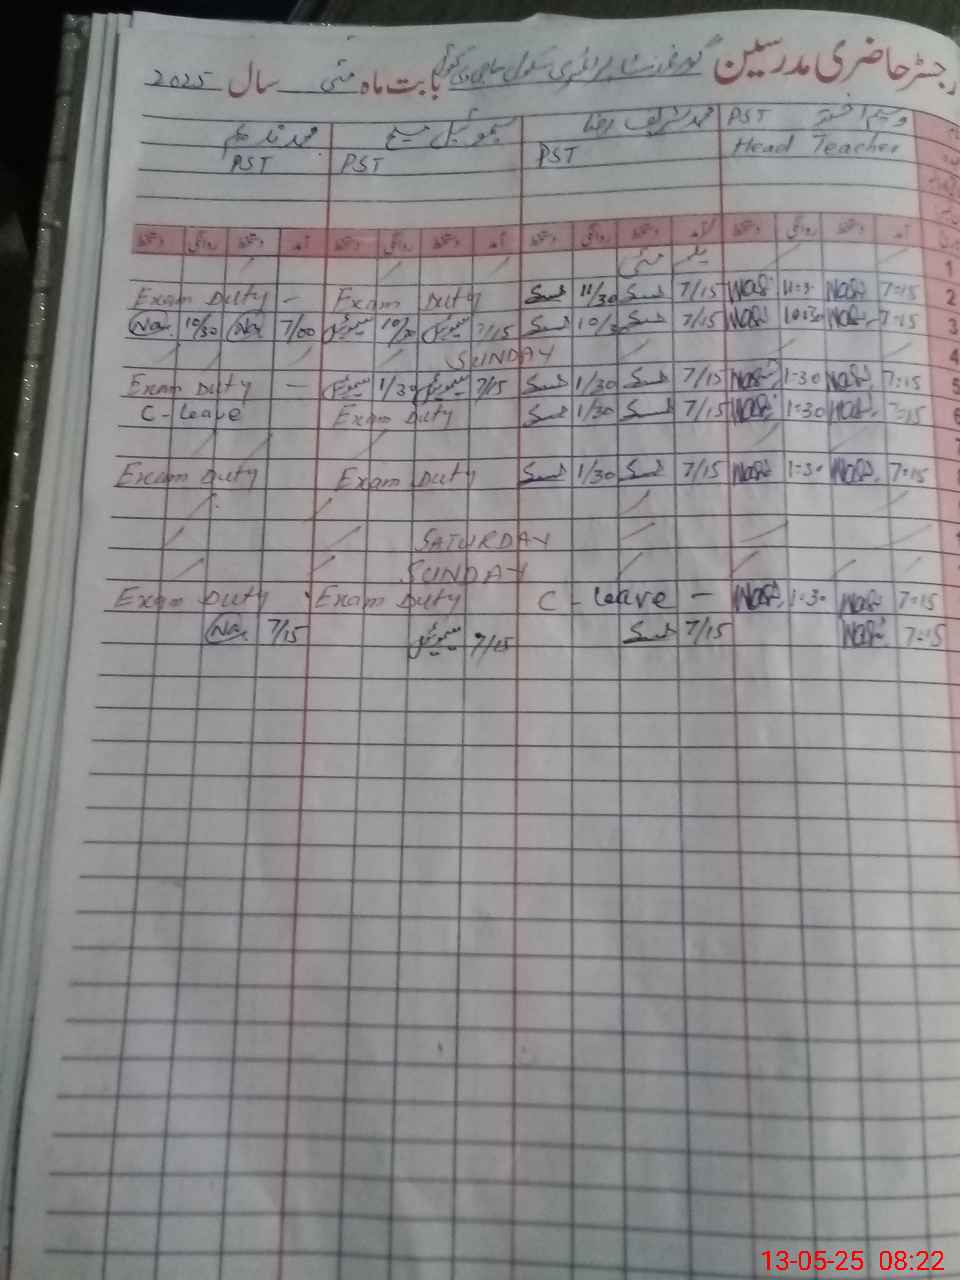 رجسٹر حاضری مدرسین گورنمنٹ پرائمری سکول بابت ماہ مئی سال 2025
وسیم اختر PST محمد شریف رضا سیموئیل مسیح محمد ندیم
Head Teacher PST PST PST
آمد دستخط روانگی دستخط آمد دستخط روانگی دستخط آمد دستخط روانگی دستخط آمد دستخط روانگی دستخط
1 یکم مئی
Exam Duty - Exam Duty 11/30 7/15 Wasi 11=3 Wasi 7=15 2
Na. 10/30 Na. 7/00 سیموئیل 10/30 سیموئیل 7/15 10/3 7/15 Wasi 10=30 Wasi 7=15 3
SUNDAY 4
Exam Duty - سیموئیل 1/30 سیموئیل 7/15 1/30 7/15 Wasi 1=30 Wasi 7=15 5
C-Leave Exam Duty 1/30 7/15 Wasi 1=30 Wasi 7=15 6
7
Exam Duty Exam Duty 1/30 7/15 Wasi 1=30 Wasi 7=15
SATURDAY
SUNDAY
Exam Duty Exam Duty C - Leave - Wasi 1=30 Wasi 7=15
Na. 7/15 سیموئیل 7/15 7/15 Wasi 7=15
13-05-25 08:22